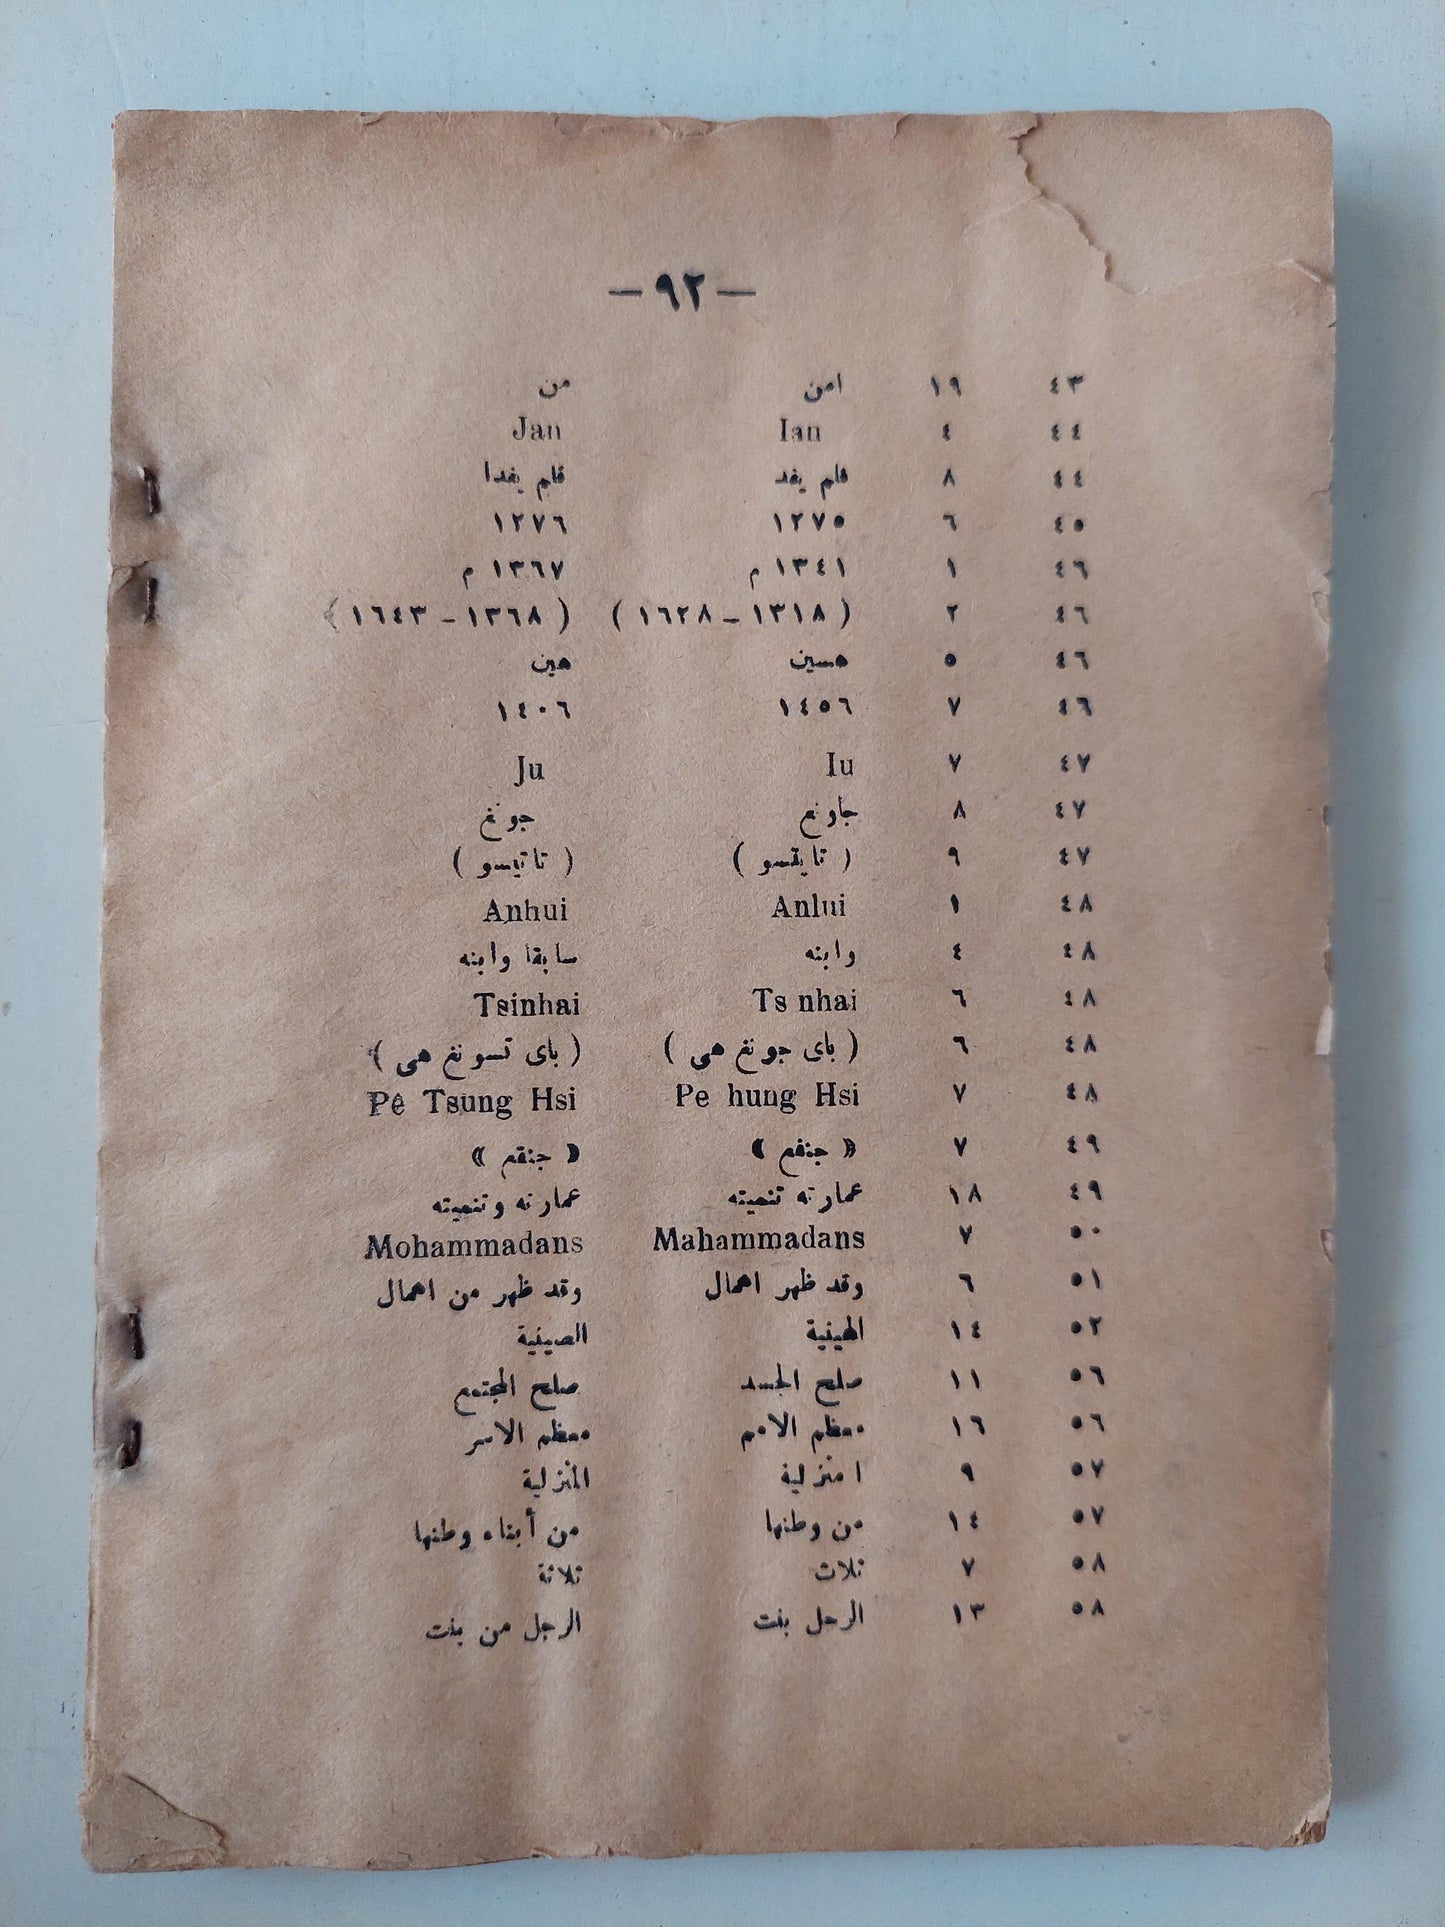 — ٩٢ —
٤٣ ١٩ امن من
٤٤ ٤ Ian Jan
٤٤ ٨ قلم يفد قلم يفدا
٤٥ ٦ ١٢٧٥ ١٢٧٦
٤٦ ١ ١٣٤١ م ١٣٦٧ م
٤٦ ٢ ( ١٣١٨ – ١٦٢٨ ) ( ١٣٦٨ – ١٦٤٣ )
٤٦ ٥ هسين هين
٤٦ ٧ ١٤٥٦ ١٤٠٦
٤٧ ٧ Iu Ju
٤٧ ٨ جاونغ جونغ
٤٧ ٩ ( تايقسو ) ( تاتيسو )
٤٨ ١ Anlui Anhui
٤٨ ٤ وابنه سابقا وابنه
٤٨ ٦ Ts nhai Tsinhai
٤٨ ٦ ( باى جونغ هى ) ( باى تسونغ هى )
٤٨ ٧ Pe hung Hsi Pê Tsung Hsi
٤٩ ٧ « جنفم » « جنقم »
٤٩ ١٨ عمارته تنميته عمارته وتنميته
٥٠ ٧ Mahammadans Mohammadans
٥١ ٦ وقد ظهر اهمال وقد ظهر من اهمال
٥٢ ١٤ الهينية الصينية
٥٦ ١١ صلح الجسد صلح المجتمع
٥٦ ١٦ معظم الامم معظم الاسر
٥٧ ٩ امنزلية المنزلية
٥٧ ١٤ من وطنها من أبناء وطنها
٥٨ ٧ ثلاث ثلاثة
٥٨ ١٣ الرحل بنت الرجل من بنت